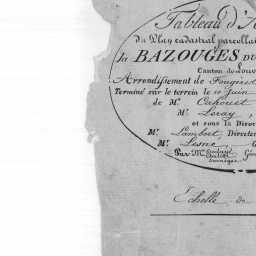 Tableau d'A
du Plan cadastral parcellai
la BAZOUGES DU
Canton de Louv
Arrondissement de Fougères
Terminé sur le terrein le 10 juin
de Mr. Cahouet
Mr. Leray,
et sous la Direc
Mr. Lambert, Directe
Mr. Lesne, G
Par Mr. Géo
Echelle de